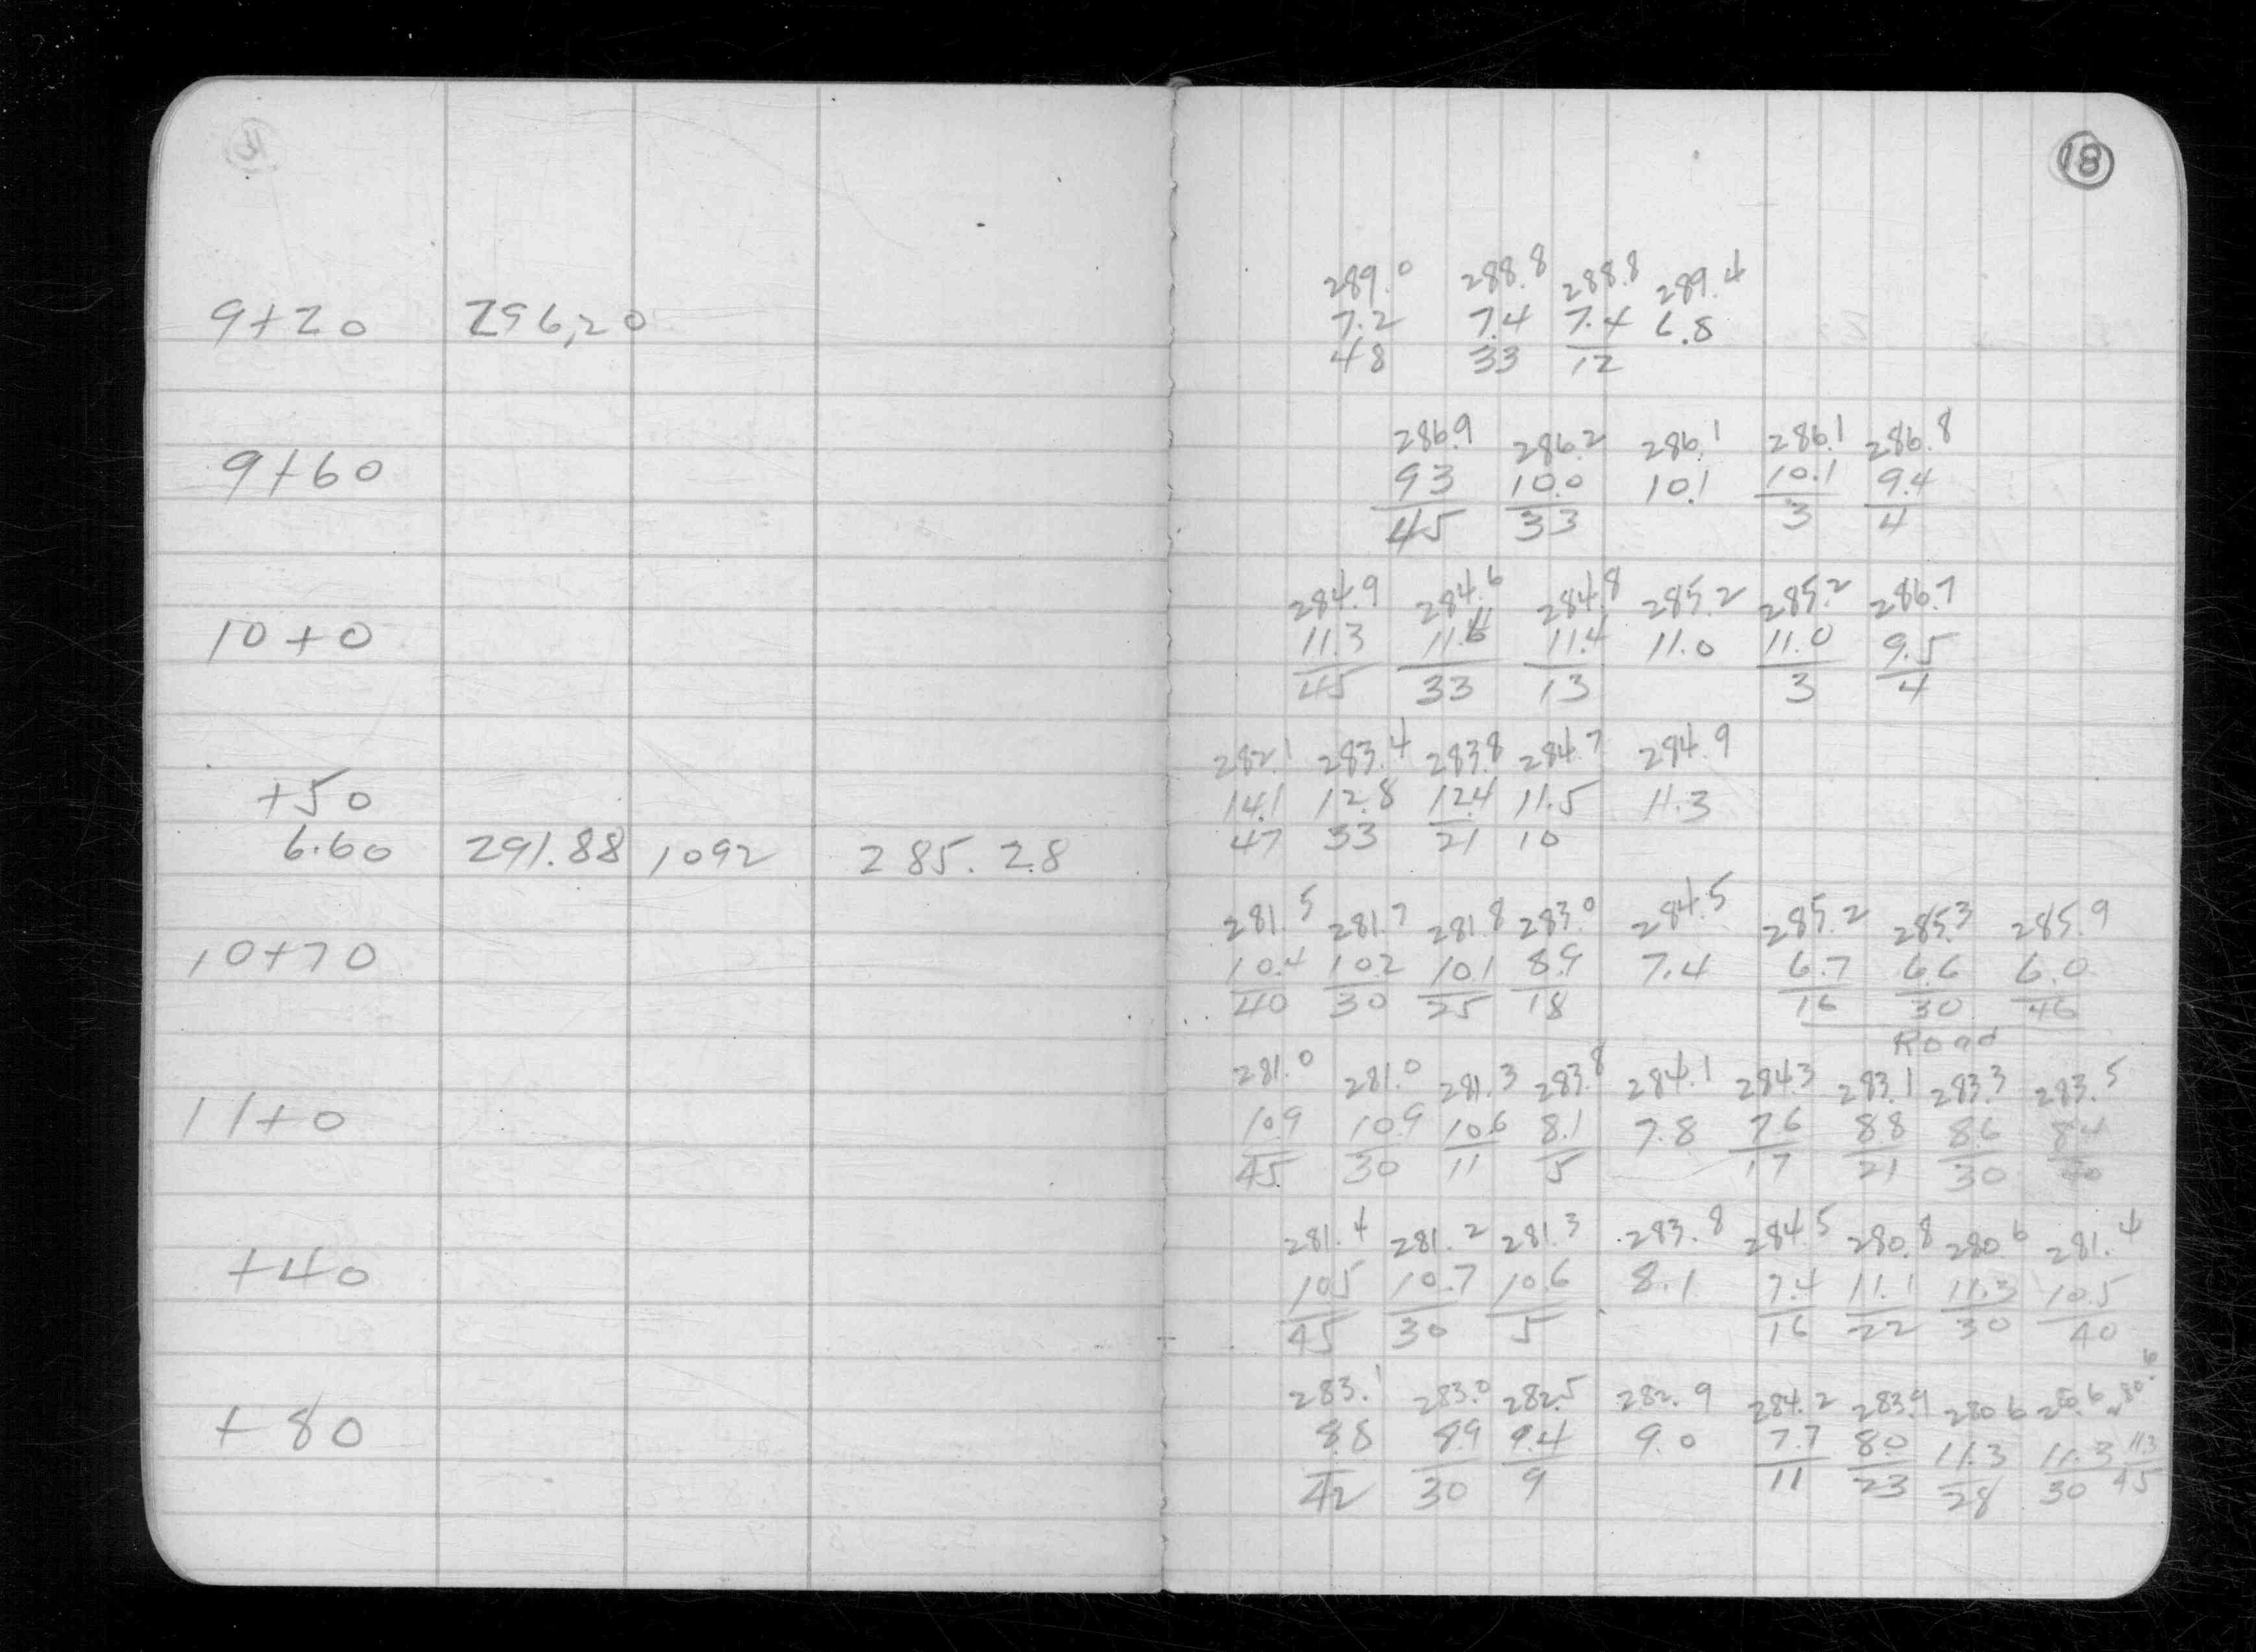 18
289.0 288.8 288.8 289.4
9+20 296,20 7.2 7.4 7.4 6.8
48 33 12
286.9 286.2 286.1 286.1 286.8
9+60 93 10.0 10.1 10.1 9.4
45 33 3 4
284.9 284.6 284.8 285.2 285.2 286.7
10+0 11.3 11.6 11.4 11.0 11.0 9.5
45 33 13 3 4
282.1 283.4 283.8 284.7 284.9
+50 14.1 12.8 12.4 11.5 11.3
6.60 291.88 1092 285.28 47 33 21 10
281.5 281.7 281.8 283.0 284.5 285.2 285.3 285.9
10+70 10.4 10.2 10.1 8.9 7.4 6.7 6.6 6.0
40 30 25 18 16 30 46
Road
281.0 281.0 281.3 283.8 284.1 284.3 283.1 283.3 283.5
11+0 10.9 10.9 10.6 8.1 7.8 7.6 8.8 8.6 8.4
45 30 11 5 17 21 30
281.4 281.2 281.3 283.8 284.5 280.8 280.6 281.4
+40 10.5 10.7 10.6 8.1 7.4 11.1 11.3 10.5
45 30 5 16 22 30 40
283.1 283.0 282.5 282.9 284.2 283.9 280.6 280.6 280.6
+80 8.8 8.9 9.4 9.0 7.7 8.0 11.3 11.3 11.3
42 30 9 11 23 28 30 45